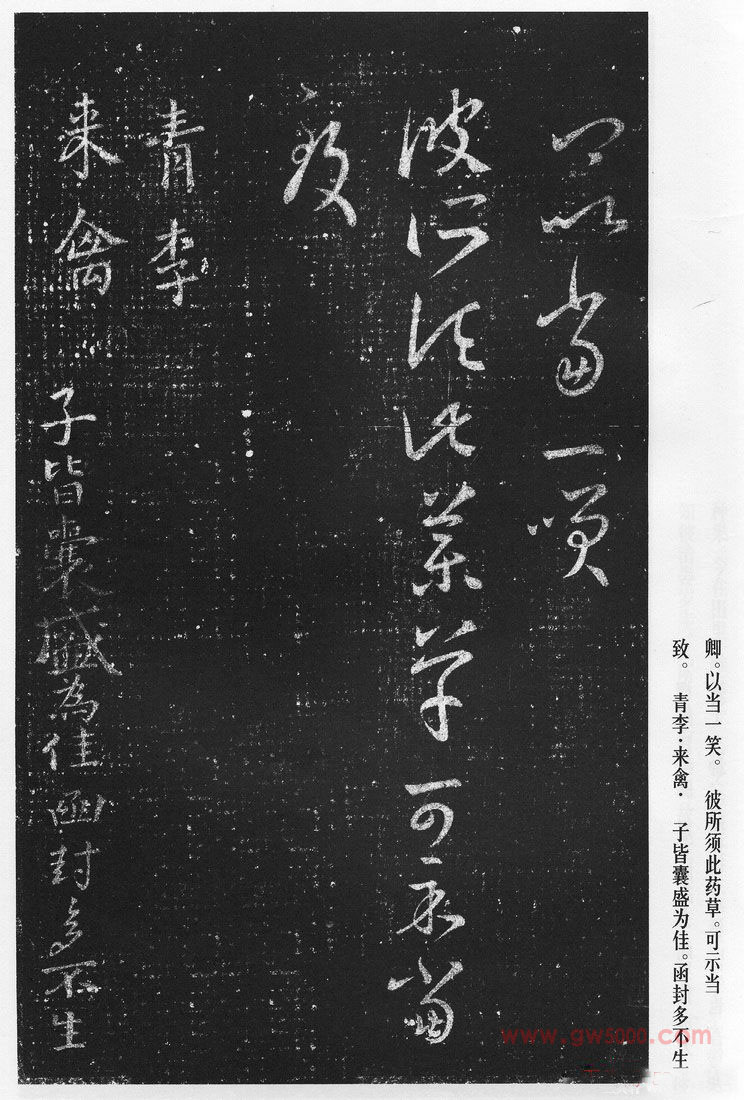 卿以当一笑
彼所须此藥草可示当
致
青李
来禽
子皆囊盛为佳函封多不生
卿。以当一笑。 彼所须此药草。可示当
致。 青李·来禽· 子皆囊盛为佳。函封多不生
www.gw5000.com